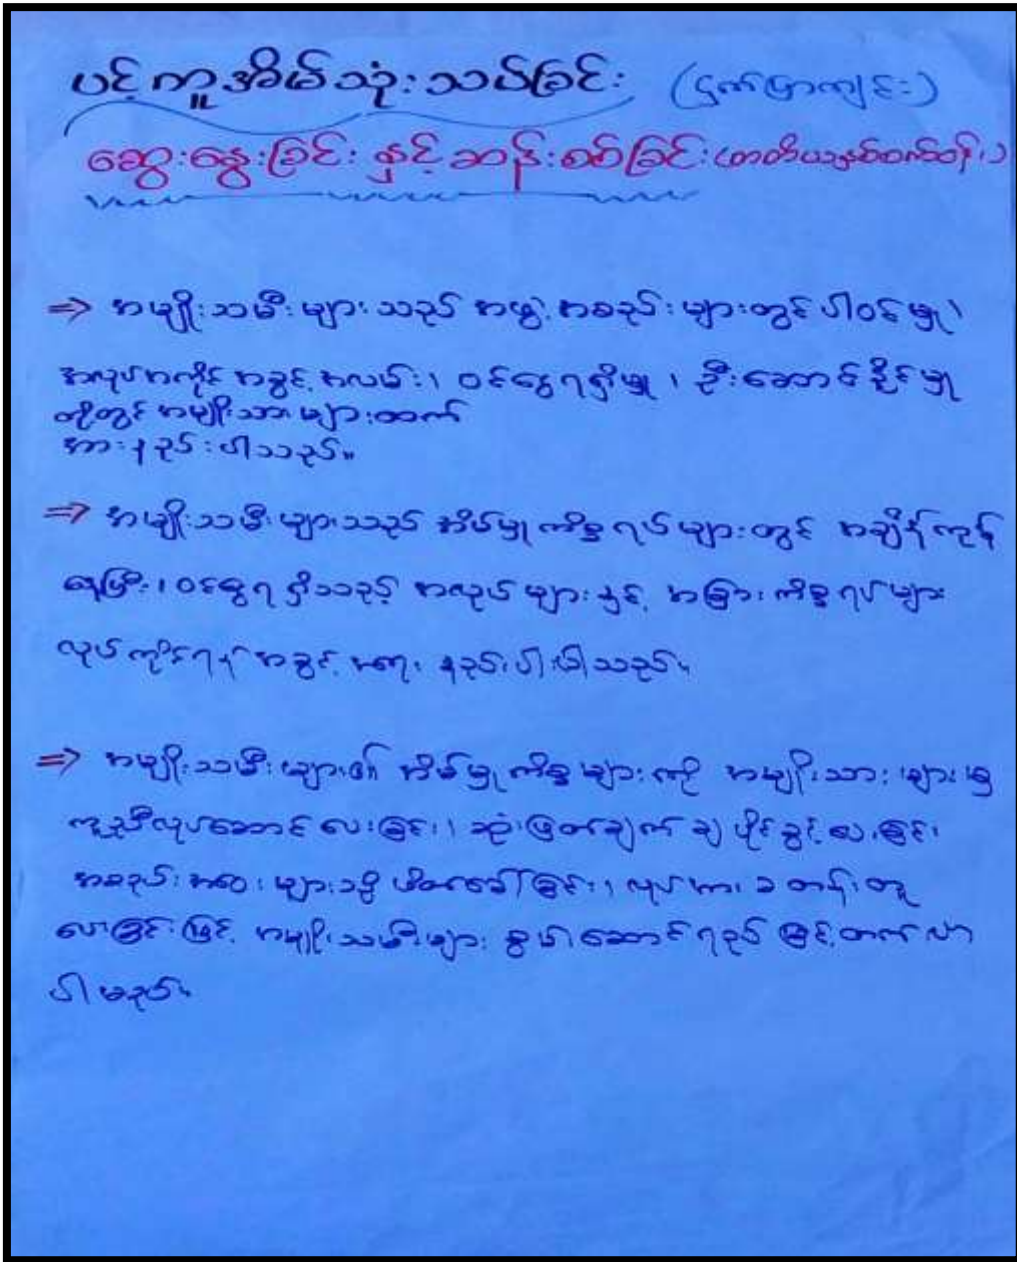 ပင့်ကူအိမ်သုံးသပ်ခြင်း (ငှက်ပြာကျင်း)
ဆွေးနွေးခြင်း နှင့် ဆန်းစစ်ခြင်း (တတိယနှစ်ဝက်ဝန်း)
⇒ အမျိုးသမီးများသည် အဖွဲ့အစည်းများတွင် ပါဝင်မှု၊
အလုပ်အကိုင် အခွင့်အလမ်း၊ ဝင်ငွေရရှိမှု၊ ဦးဆောင်နိုင်မှု
တို့တွင် အမျိုးသားများထက်
အားနည်းပါသည်။
⇒ အမျိုးသမီးများသည် အိမ်မှုကိစ္စရပ်များတွင် အချိန်ကုန်
နေပြီး၊ ဝင်ငွေရရှိသည့် အလုပ်များနှင့် အခြားကိစ္စရပ်များ
လုပ်ကိုင်ရန် အခွင့်အရေး နည်းပါးပါသည်။
⇒ အမျိုးသမီးများ၏ အိမ်မှုကိစ္စများကို အမျိုးသားများမှ
ကူညီလုပ်ဆောင်ပေးခြင်း၊ ဆုံးဖြတ်ချက်ချပိုင်ခွင့်ပေးခြင်း
အစည်းအဝေးများသို့ ဖိတ်ခေါ်ခြင်း၊ လုပ်အားခ တန်းတူ
ပေးခြင်းဖြင့် အမျိုးသမီးများ စွမ်းဆောင်ရည် မြင့်တက်လာ
ပါမည်။